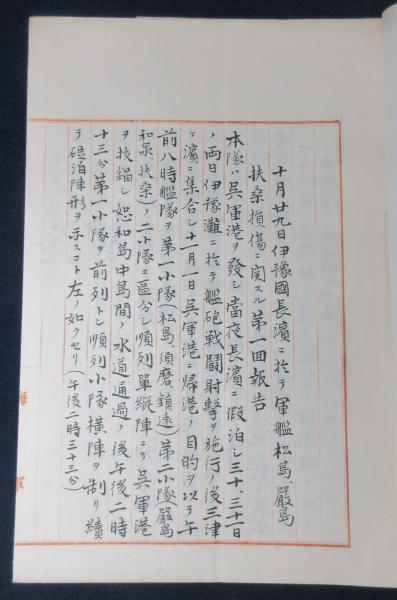 十月廿九日伊豫國長濱ニ於テ軍艦松島、嚴島
扶桑損傷ニ関スル第一回報告
本隊ハ呉軍港ヲ發シ當夜長濱ニ假泊シ三十、三十一日
ノ両日伊豫灘ニ於テ艦砲戰鬪射撃ヲ施行ノ後三津
ヶ濱ニ集合シ十一月一日呉軍港ニ帰港ノ目的ヲ以テ午
前八時艦隊ヲ第一小隊(松島、須磨、鎮遠)第二小隊(嚴島
和泉、扶桑)ノ二小隊ニ區分シ順列單縦陣ニテ呉軍港
ヲ抜錨シ怒和島中島間ノ水道通過ノ後午後二時
十三分第一小隊ヲ前列トシ順列小隊横陣ヲ制リ續
テ碇泊陣形ヲ示スコト左ノ如クセリ(午後二時三十三分)
海軍